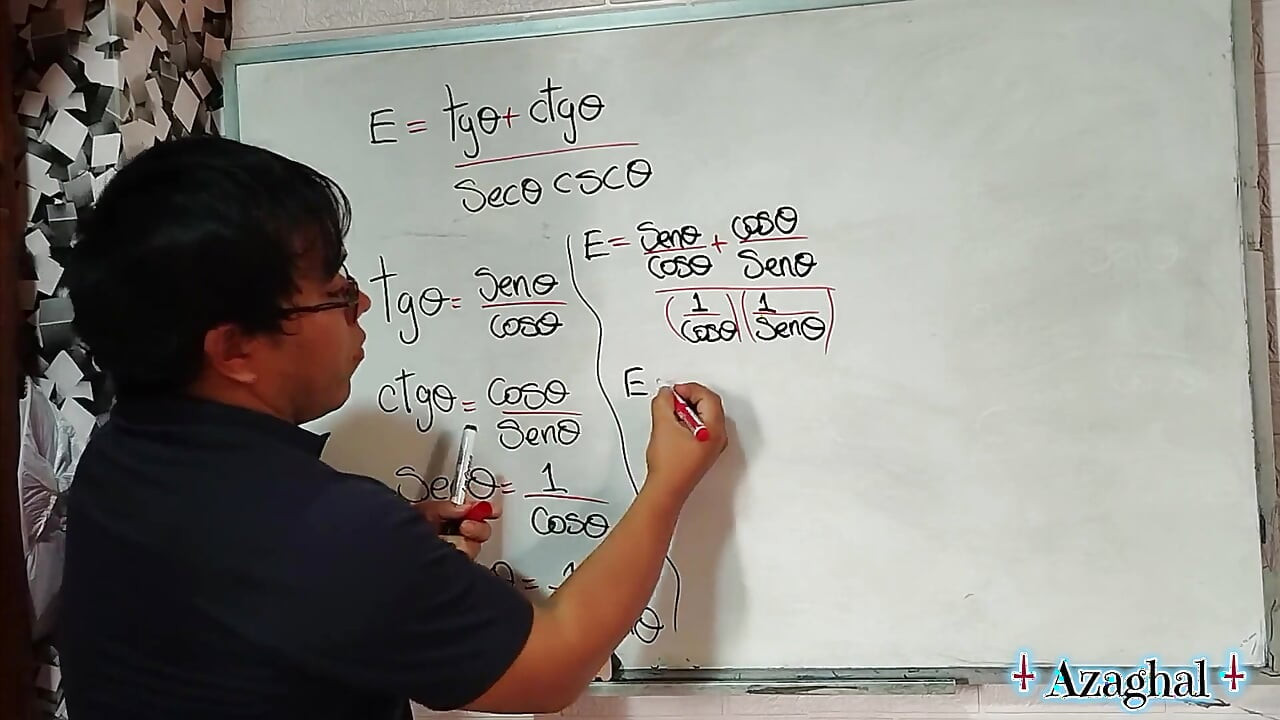 E = tgθ + ctgθ
secθ cscθ
tgθ = senθ
cosθ
ctgθ = cosθ
senθ
secθ = 1
cosθ
θ = 1
θ
E = senθ + cosθ
cosθ senθ
(1)(1)
cosθ senθ
E =
Azaghal